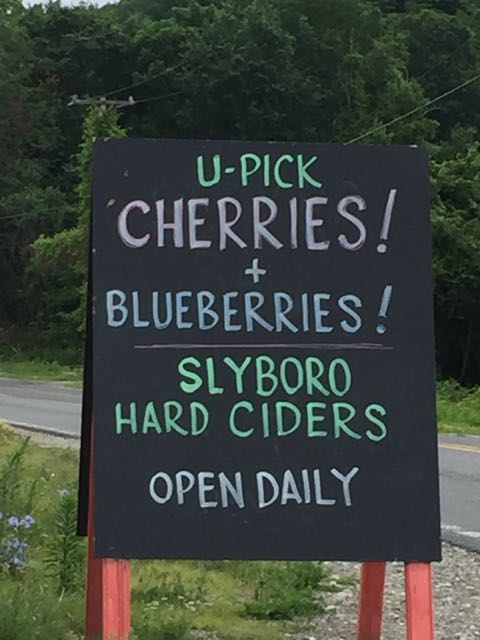 U-PICK
CHERRIES!
+
BLUEBERRIES!
SLYBORO
HARD CIDERS
OPEN DAILY